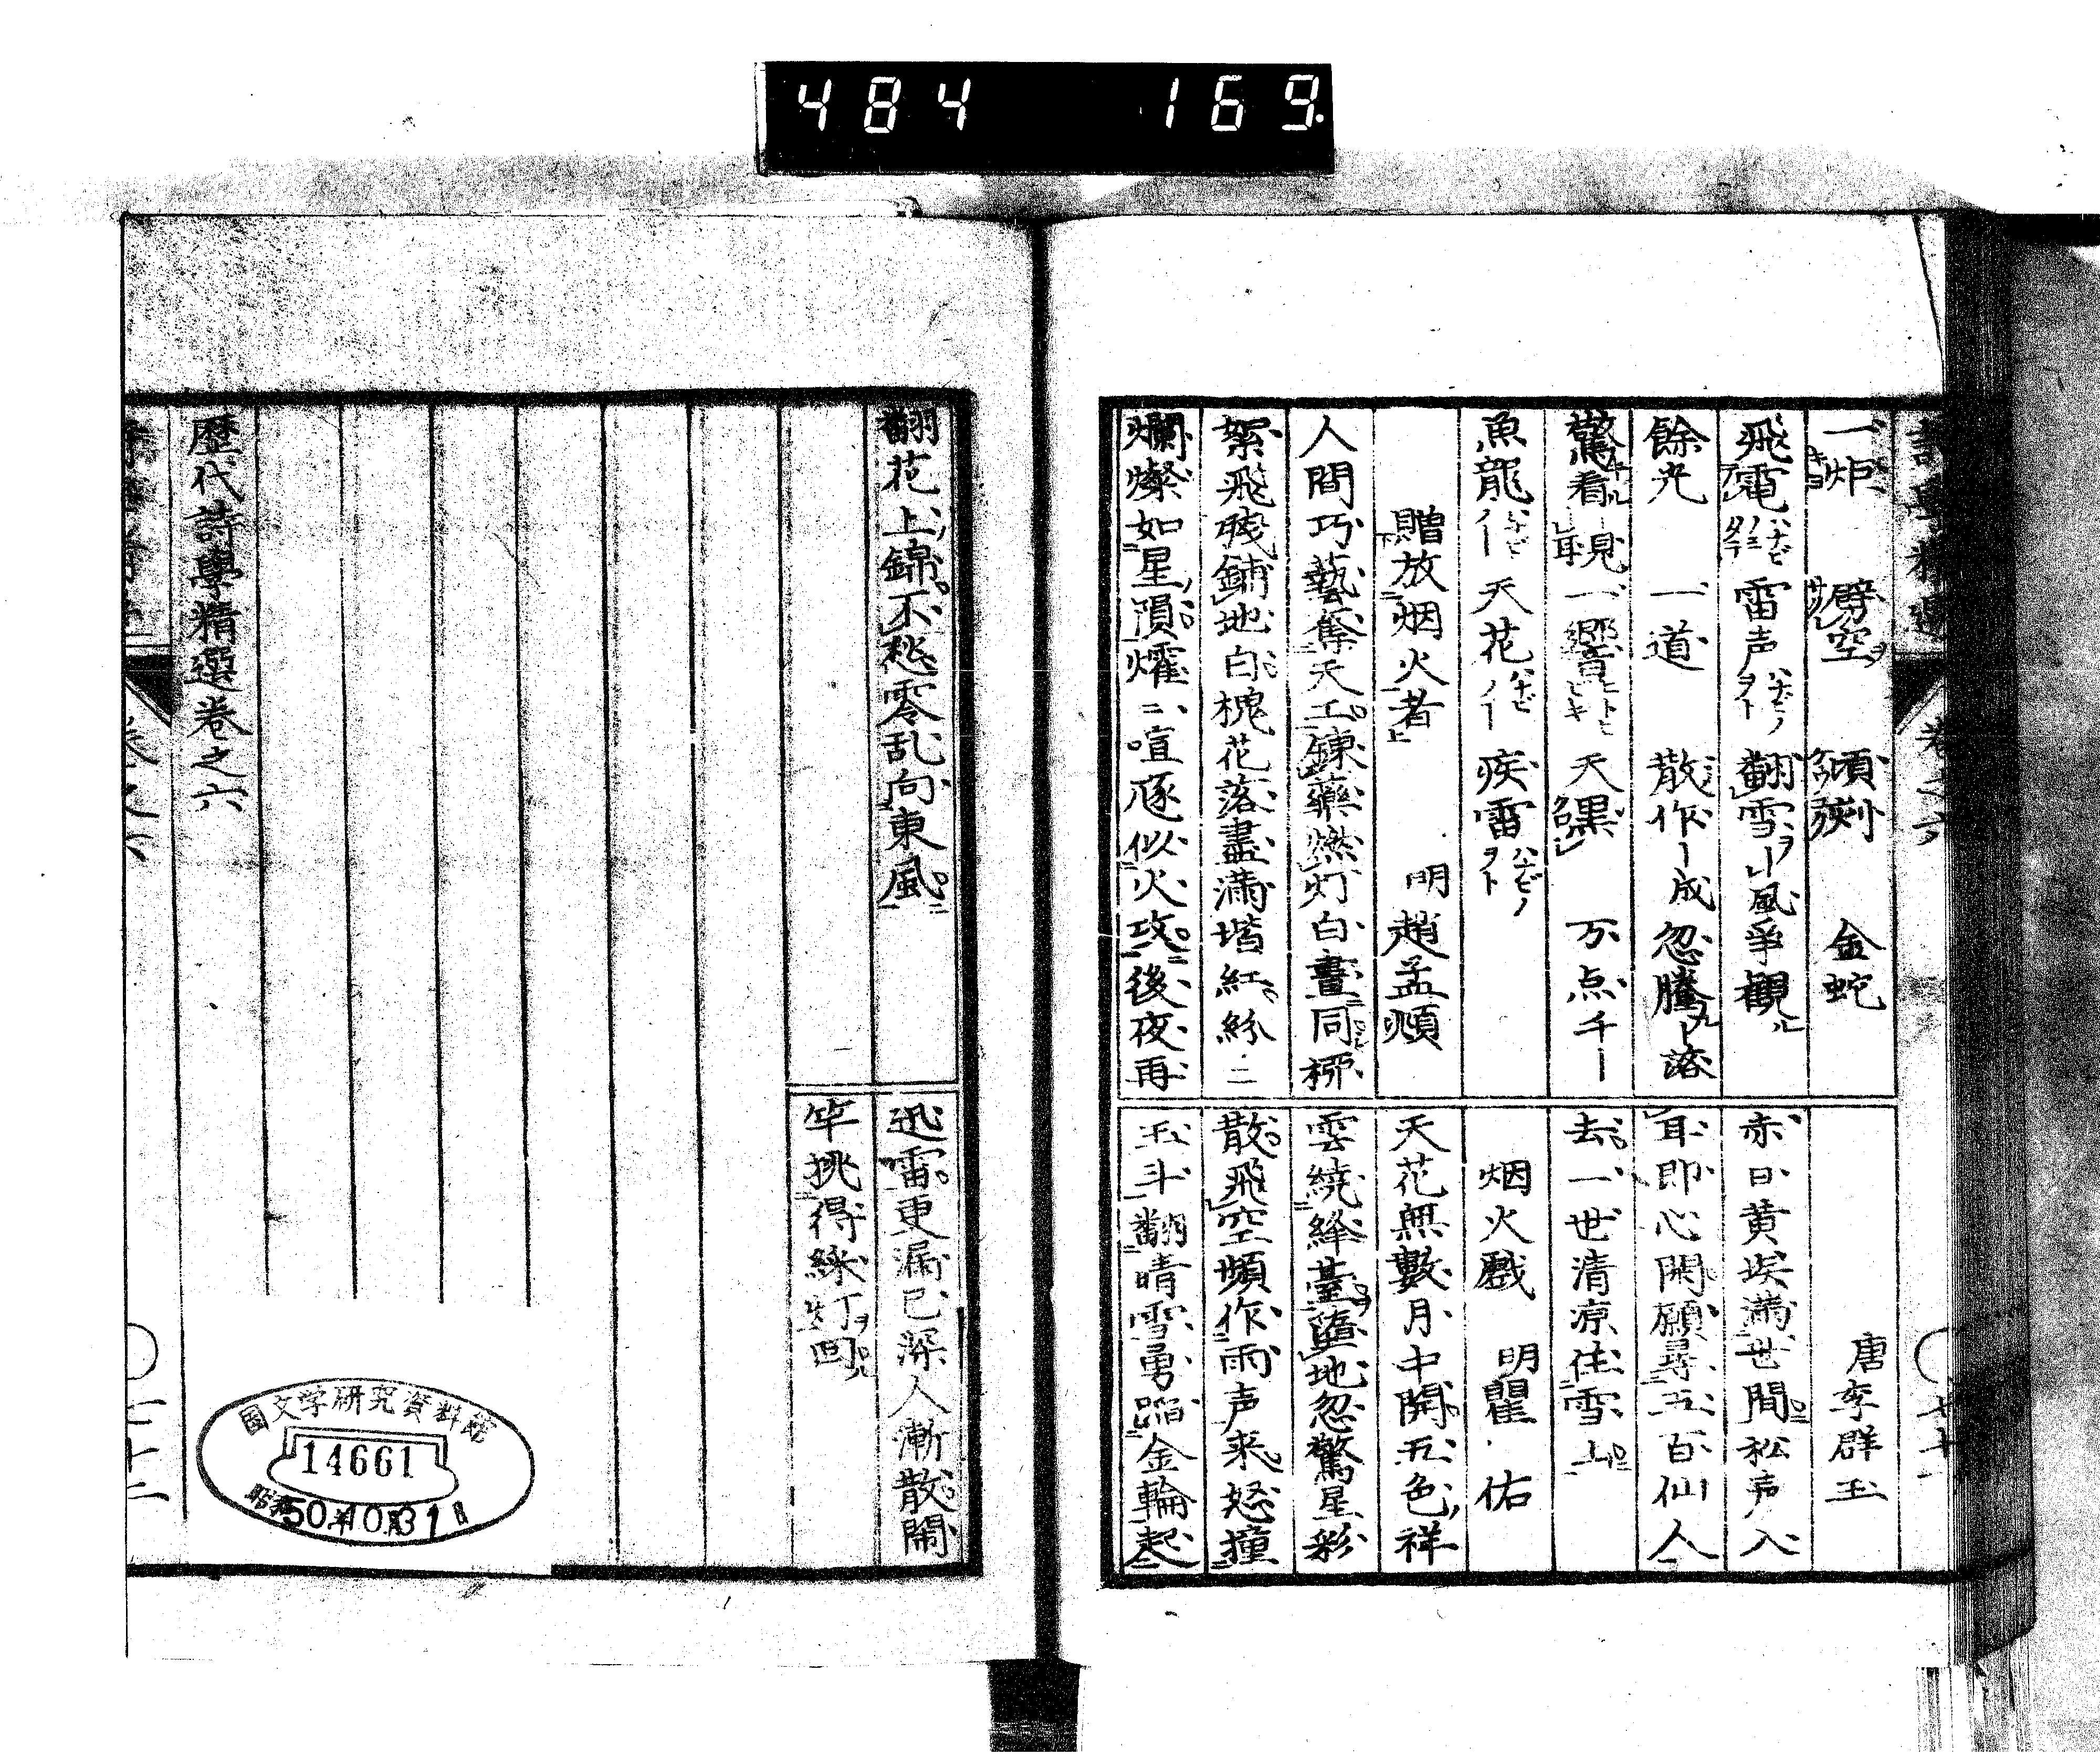 484 169.
一炬 劈空 頃刻 金蛇
飛電 雷声 翻雪 風爭観
餘光 一道 散作 成 忽騰 落
驚看 一響 天黒 万点千
魚龍 天花 疾雷
贈放烟火者 明趙孟頫
人間巧藝奪天工錬藥燃灯白晝同柳
絮飛残鋪地白槐花落盡満堦紅紛二
爛燦如星隕燿二喧豗似火攻後夜再
唐李群玉
赤日黄埃満世間松声入
耳即心閑願尋五百仙人
去一世清凉住雪山
烟火戯 明瞿佑
天花無數月中開五色祥
雲繞絳臺墮地忽驚星彩
散飛空頻作雨声来怒撞
玉斗翻晴雪勇蹈金輪起
翻花上錦不愁零乱向東風
迅雷更漏已深人漸散閙
竿挑得綵灯回
歴代詩學精選巻之六
國文学研究資料館
14661
昭和50年10月31日